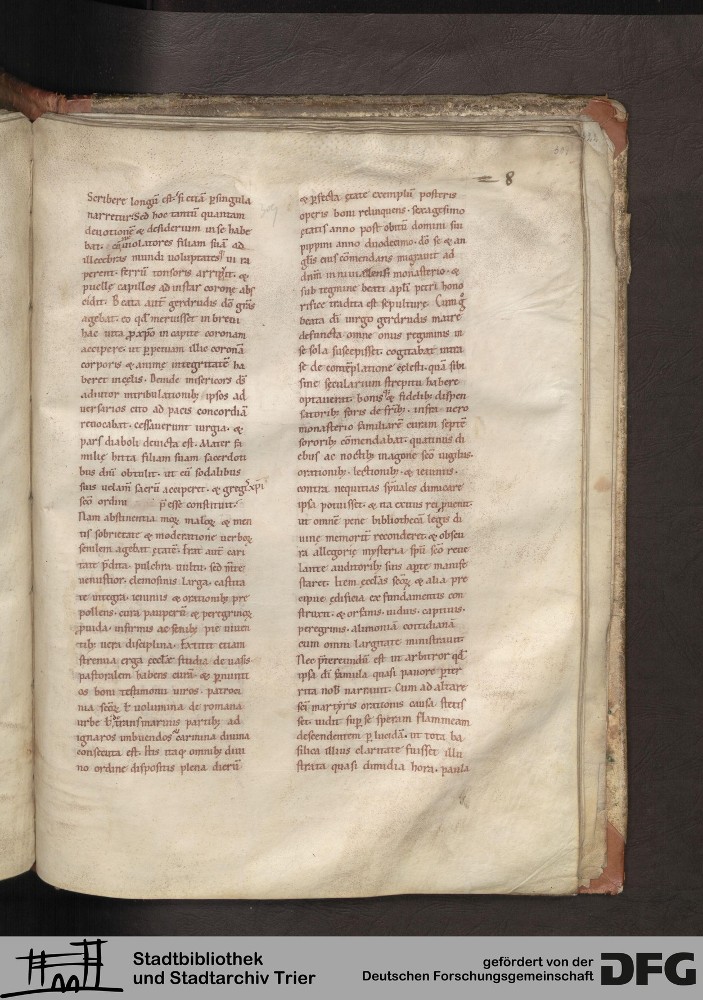 8
Scribere longū est· si etiā p̄singula
narretur· Sed hoc tantū quantum
deuotionē & desiderium in se habe
bat· uiolatores filiam suā ad
illecebras mundi uoluptates ui ra
perent· ferrū tonsoris arripuit· &
puelle capillos ad instar corone abs
cidit· Beata aut̄ gerdrudis dō grās
agebat· eo qd̄ meruisset in breui
hac uita p xpō in capite coronam
accipere· ut ppetuam illic coronā
corporis & anime integritatē ha
beret in celis· Deinde misericors d̄s
adiutor in tribulationib; ipsos ad
uersarios cito ad pacis concordiā
reuocabat· cessauerunt iurgia· &
pars diaboli deuicta est· Mater fa
milie bitta filiam suam sacerdoti
bus dn̄i obtulit· ut cū sodalibus
suis uelam̄ sacrū acciperet· & gregi xp̄i
sc̄o ordini p̄esse constituit·
Nam abstinentia moꝝ maloꝝ & men
tis sobrietate & moderatione uerboꝝ
senilem agebat ętatē· Erat aut̄ cari
tate p̄dita· pulchra uultu· sed m̄te
uenustior· elemosinis larga· castita
te integra· ieiuniis & orationib; pre
pollens· cura pauperū & peregrinoꝝ
p̄uida· infirmis ac senib; pie
tib; uera disciplina· Extitit etiam
strenua erga ęcclię studia de uasis
pastoralem habens curā· & p̄
os boni testimonii uiros· patroci
nia sc̄oꝝ ł uolumina de romana
urbe & de transmarinis partib; ad
ignaros imbuendos carmina diuina
consecuta est· Istis itaq; omnib; diui
no ordine dispositis plena dierū
& p̄fecta ętate exemplū posteris
operis boni relinquens· sexagesimo
ętatis anno post obitū domini sui
pippini anno duodecimo· dō se & an
glis eius cōmendans migrauit ad
dn̄m in niuialensi monasterio· &
sub tegmine beati apl̄i petri hono
rifice tradita est sepulture· Cumq;
beata dī uirgo gerdrudis matre
defuncta omne onus regiminis in
se sola suscepisset· cogitabat intra
se de contēplatione celesti· quā sibi
sine secularium strepitu habere
optauerit· bonis & fidelib; dispen
satorib; foris de fr̄ib;· infra uero
monasterio familiarē curam septē
sororib; cōmendabat· quatinus di
ebus ac noctib; in agone sc̄o uigiliis·
orationib;· lectionib;· & ieiuniis·
contra nequitias spūales dimicare
ipsa potuisset· & ita exitus rei puenit·
ut omnē pene bibliothecā legis di
uine memorię reconderet· & obscu
ra allegorię mysteria sp̄u sc̄o reue
lante auditorib; suis apte manife
staret· Item ęcclās sc̄oꝝ & alia pre
cipue edificia ex fundamentis con
struxit· & orfanis· uiduis· captiuis·
peregrinis· alimoniā cottidianā
cum omni largitate ministrauit·
Nec p̄tereundū est ut arbitror qd̄
ipsa dī famula quasi pauore pter
rita nob narrauit· Cum ad altare
sc̄i martyris orationis causa stetis
set· uidit sup se speram flammeam
descendentem plucidā· ut tota ba
silica illius claritate fuisset illu
strata quasi dimidia hora· paula
Stadtbibliothek
und Stadtarchiv Trier
gefördert von der
Deutschen Forschungsgemeinschaft
DFG